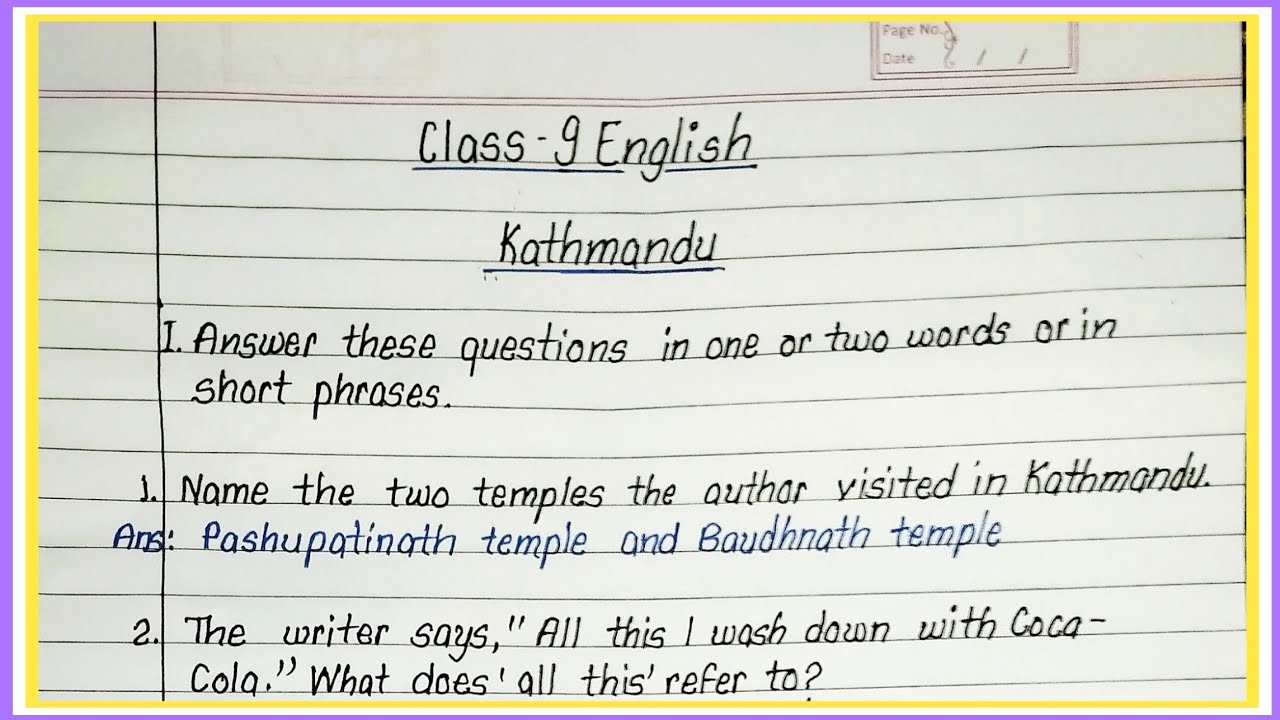 Page No.
Date / /
Class-9 English
Kathmandu
I. Answer these questions in one or two words or in
short phrases.
1. Name the two temples the author visited in Kathmandu.
Ans: Pashupatinath temple and Baudhnath temple
2. The writer says," All this I wash down with Coca-
Cola." What does 'all this' refer to?